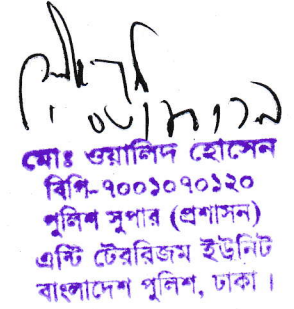 মোঃ ওয়ালিদ হোসেন
বিপি-৭০০১০৭০১২০
পুলিশ সুপার (প্রশাসন)
এন্টি টেররিজম ইউনিট
বাংলাদেশ পুলিশ, ঢাকা।